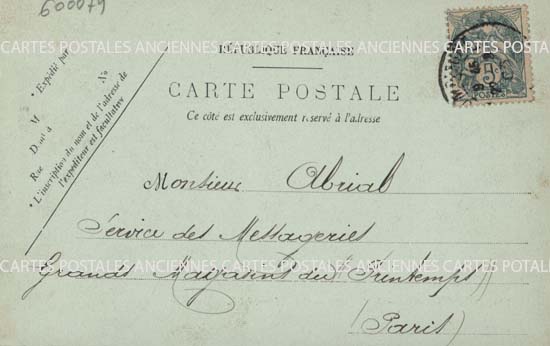 600079
RÉPUBLIQUE FRANÇAISE
CARTE POSTALE
Ce côté est exclusivement réservé à l'adresse
* Expédié par
M
Demt à
Rue Nº
* L'inscription du nom et de l'adresse de
l'expéditeur est facultative
5
POSTES
Monsieur Abrial
Service des Messageries
Grands Magasins du Printemps
(Paris)
CARTES POSTALES ANCIENNES CARTES POSTALES ANCIENNES CARTES
CARTES POSTALES ANCIENNES CARTES POSTALES ANCIENNES CARTES POTALES